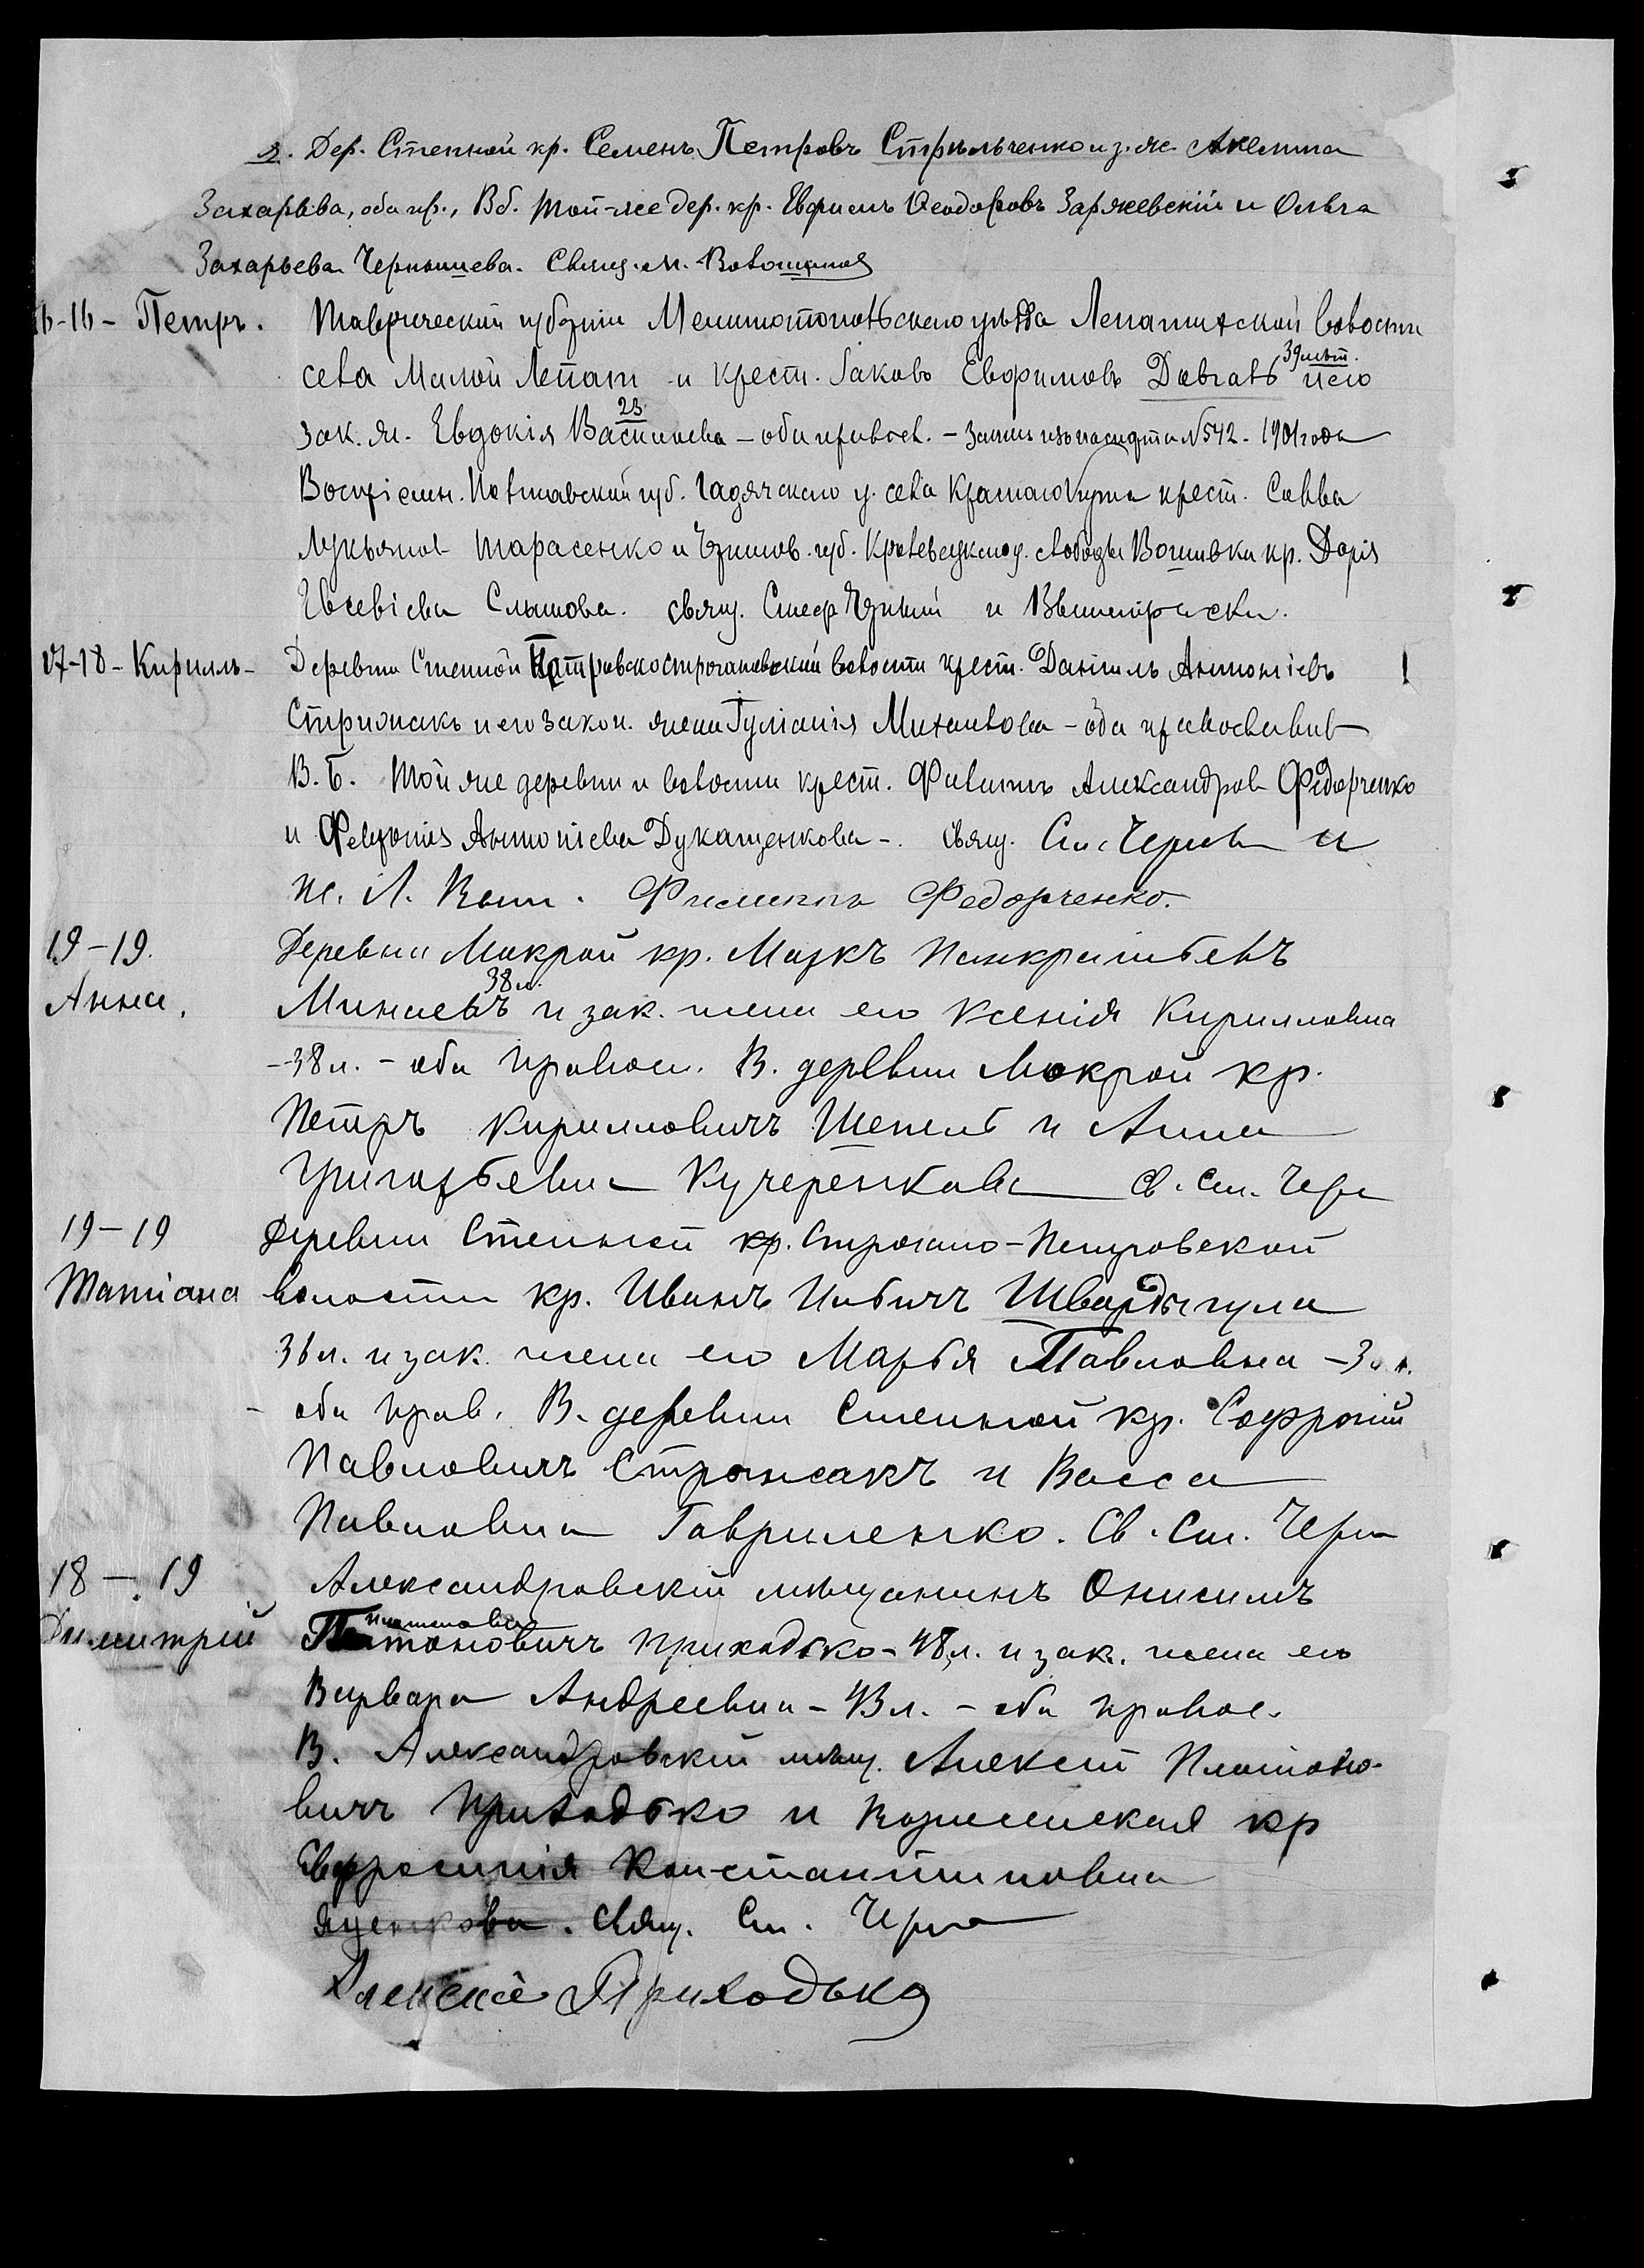 Дер. Степной кр. Семенъ Петровъ Стрильченко и з. ж. Акелина
Захарьева, оба пр., Вб. той-же дер. кр. Евфимъ Ѳеодоровъ Заржевскій и Ольга
Захарьева Чернышева. Свящ. М. Волошинов
16-16- Петръ. Таврической губерніи Мелитопольскаго уѣзда Лепатихской волости
села Малой Лепатихи крестн. Іаковъ Евфимовъ Довгаль 39 лѣт. и его
зак. ж. Евдокія Васильева 23 - оба правосл. - Запись изъ паспорта №542. 1901 года
Воспріемн. Полтавской губ. Гадячскаго у. села Краснолуки крест. Савва
Лукьянов Тарасенко и Чернигов. губ. Кролевецкаго у. слободы Вошивки кр. Дарія
Евсевіева Слашова. свящ. Стеф. Черный и
17-18- Кириллъ- Деревни Степной Петровскостроганов­ской волости крест. Даніилъ Антоніевъ !
Стрижакъ и его закон. жена Іуліанія Михайлова - оба православн
В. Б. той же деревни и волости крест. Филиппъ Александров Федорченко
и Феврония Антоніева Лукашенкова -. свящ. Ст. Черный и
пс. Л. Филиппъ Федорченко.
19-19. Деревни Мокрой кр. Маркъ Панкратьевъ
Анна, Минаевъ 38 л. и зак. жена его Ксенія Кирилловна
-38 л. - оба правосл. В. деревни Мокрой кр.
Петръ Кирилловичъ Шепель и Анна
Григорьевна Кучеренкова Св. Ст. Черн
19-19 Деревни Степной кр. Строгано-Петровской
Татіана волости кр. Иванъ Ильичъ Швардыгула
36 л. и зак. жена его Марья Павловна -3 л.
- оба прав. В. деревни Степной кр. Софроній
Павловичъ Стрижакъ и Васса
Павловна Гавриленко. Св. Ст. Черн
18-19 Александровскій мѣщанинъ Онисимъ
Димитрій Платоновичъ Приходько - 48 л. и зак. жена его
Варвара Андреевна - 43 л. - оба правос.
В. Александровскій мѣщ. Алексѣй Платоно-
вичъ Приходько и кр
Евфросинія Константиновна
Яценкова. Свящ. Ст. Черн
Алексей Приходько